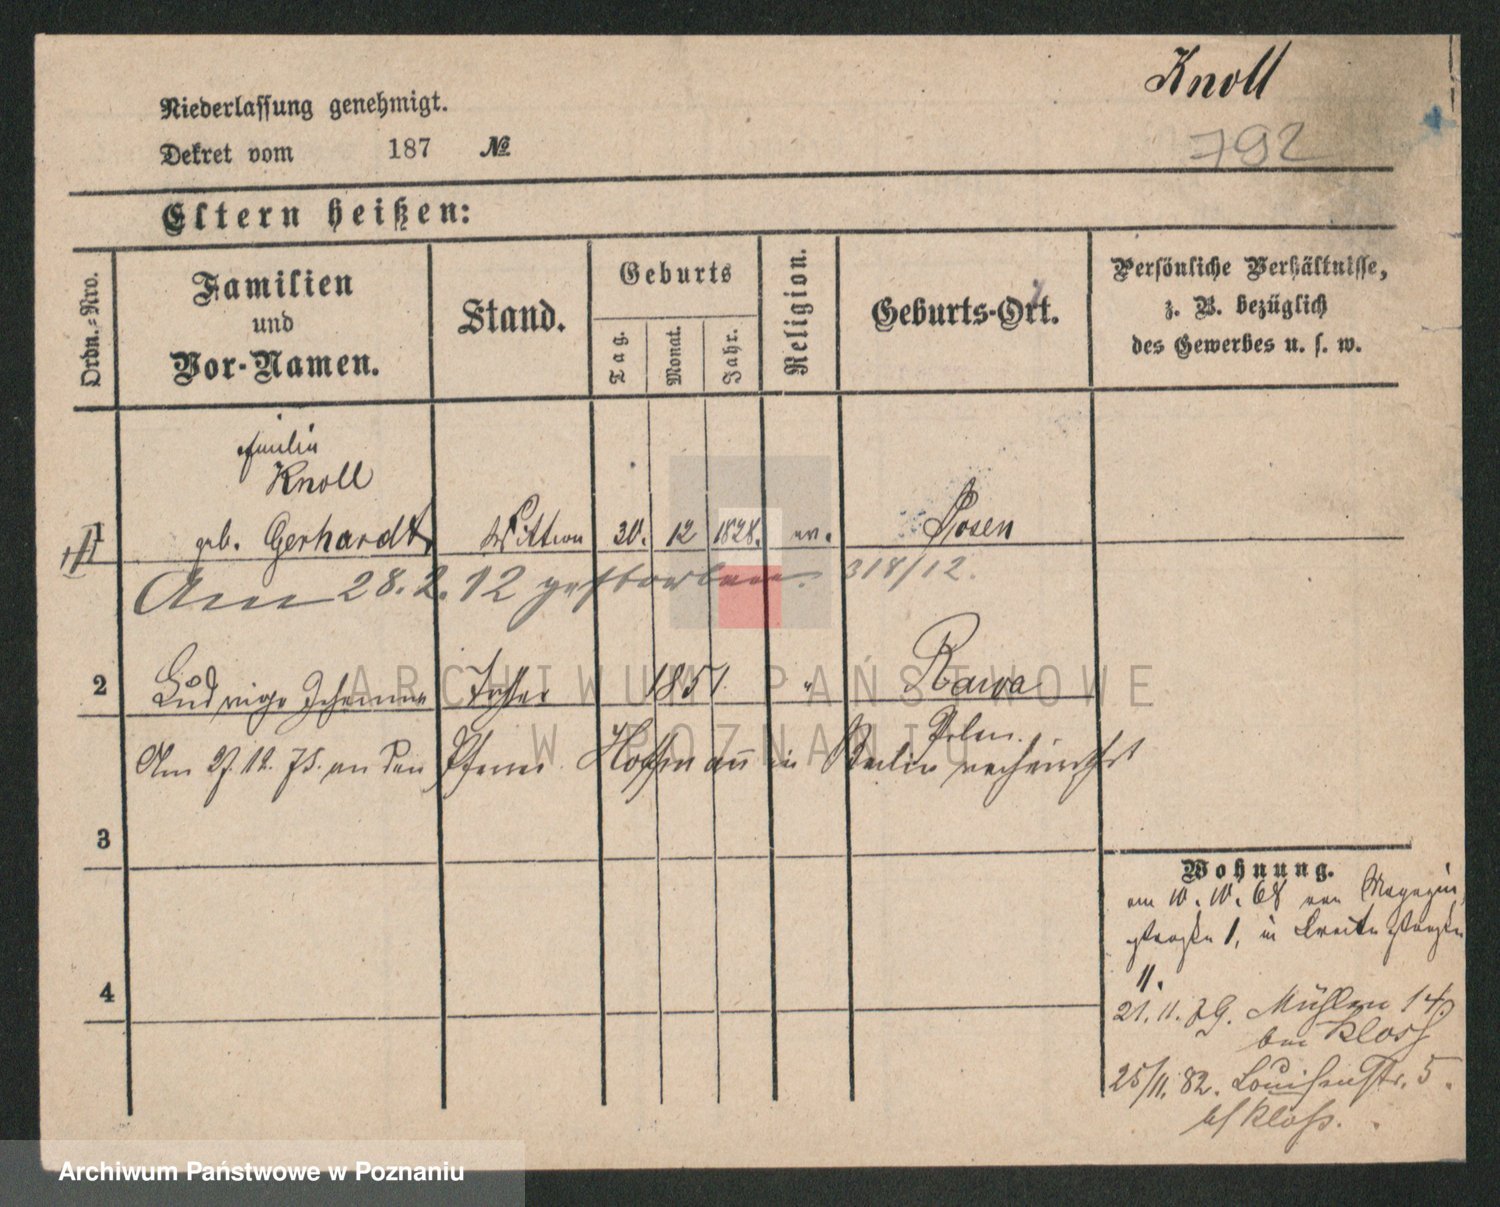 Knoll
792
Niederlassung genehmigt.
Dekret vom 187 №
Eltern heißen:
Ordn.-Nro.
Familien und Vor-Namen.
Stand.
Geburts
Tag.
Monat.
Jahr.
Religion.
Geburts-Ort.
Persönliche Verhältnisse,
z. B. bezüglich
des Gewerbes u. s. w.
Knoll
1 geb. Gerhardt, Wittwe 30. 12 1828. ev. Posen
Am 28. 2. 12 gestorben. 318/12.
2 Ludwiga Johanna Tochter 1851. " Rawa
Polen.
Am 27. 12. 75. an den Hoffmann in Berlin verheirathet
3
4
Wohnung.
am 10. 10. 68 von Magazin
straße 1, in Breite straße
11.
21. 11. 79. Mühlen 14.
bei Kloss
25/11. 82. Louisenstr. 5.
b/ Kloß.
ARCHIWUM PAŃSTWOWE
W POZNANIU
Archiwum Państwowe w Poznaniu